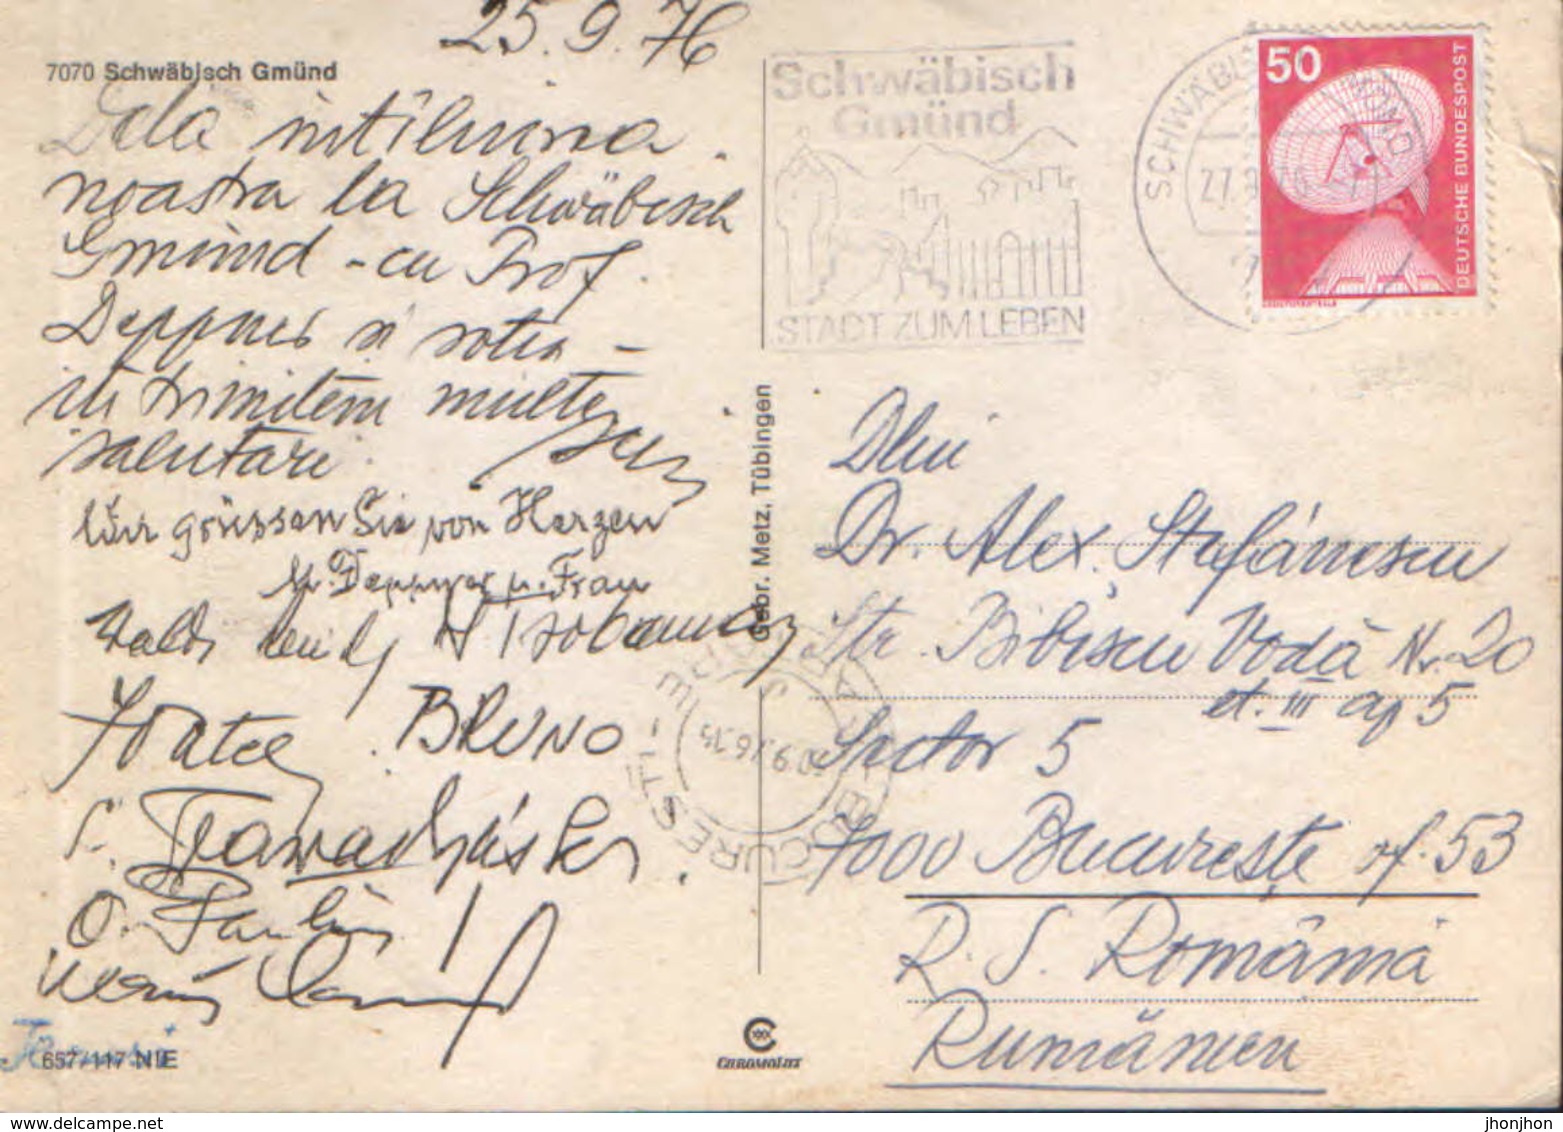 25.9.76
7070 Schwäbisch Gmünd
Dela intîlnirea
noastra la Schwäbisch
Gmünd - cu Prof.
Deppner si sotia -
iti trimitem multe
salutari.
Wir grüssen Sie von Herzen
Deppner u. Frau
BRUNO
O.
Schwäbisch
Gmünd
STADT ZUM LEBEN
SCHWÄBISCH GMÜND
27.9.76
50
DEUTSCHE BUNDESPOST
Gebr. Metz, Tübingen
BUCURESTI
Dlui
Dr. Alex. Stefănescu
Str. Bibescu Vodă Nr. 20
et. III ap 5
Sector 5
7000 București of. 53
R. S. România
Rumänien
657/117 NIE
CHROMOLUX
jhonjhon